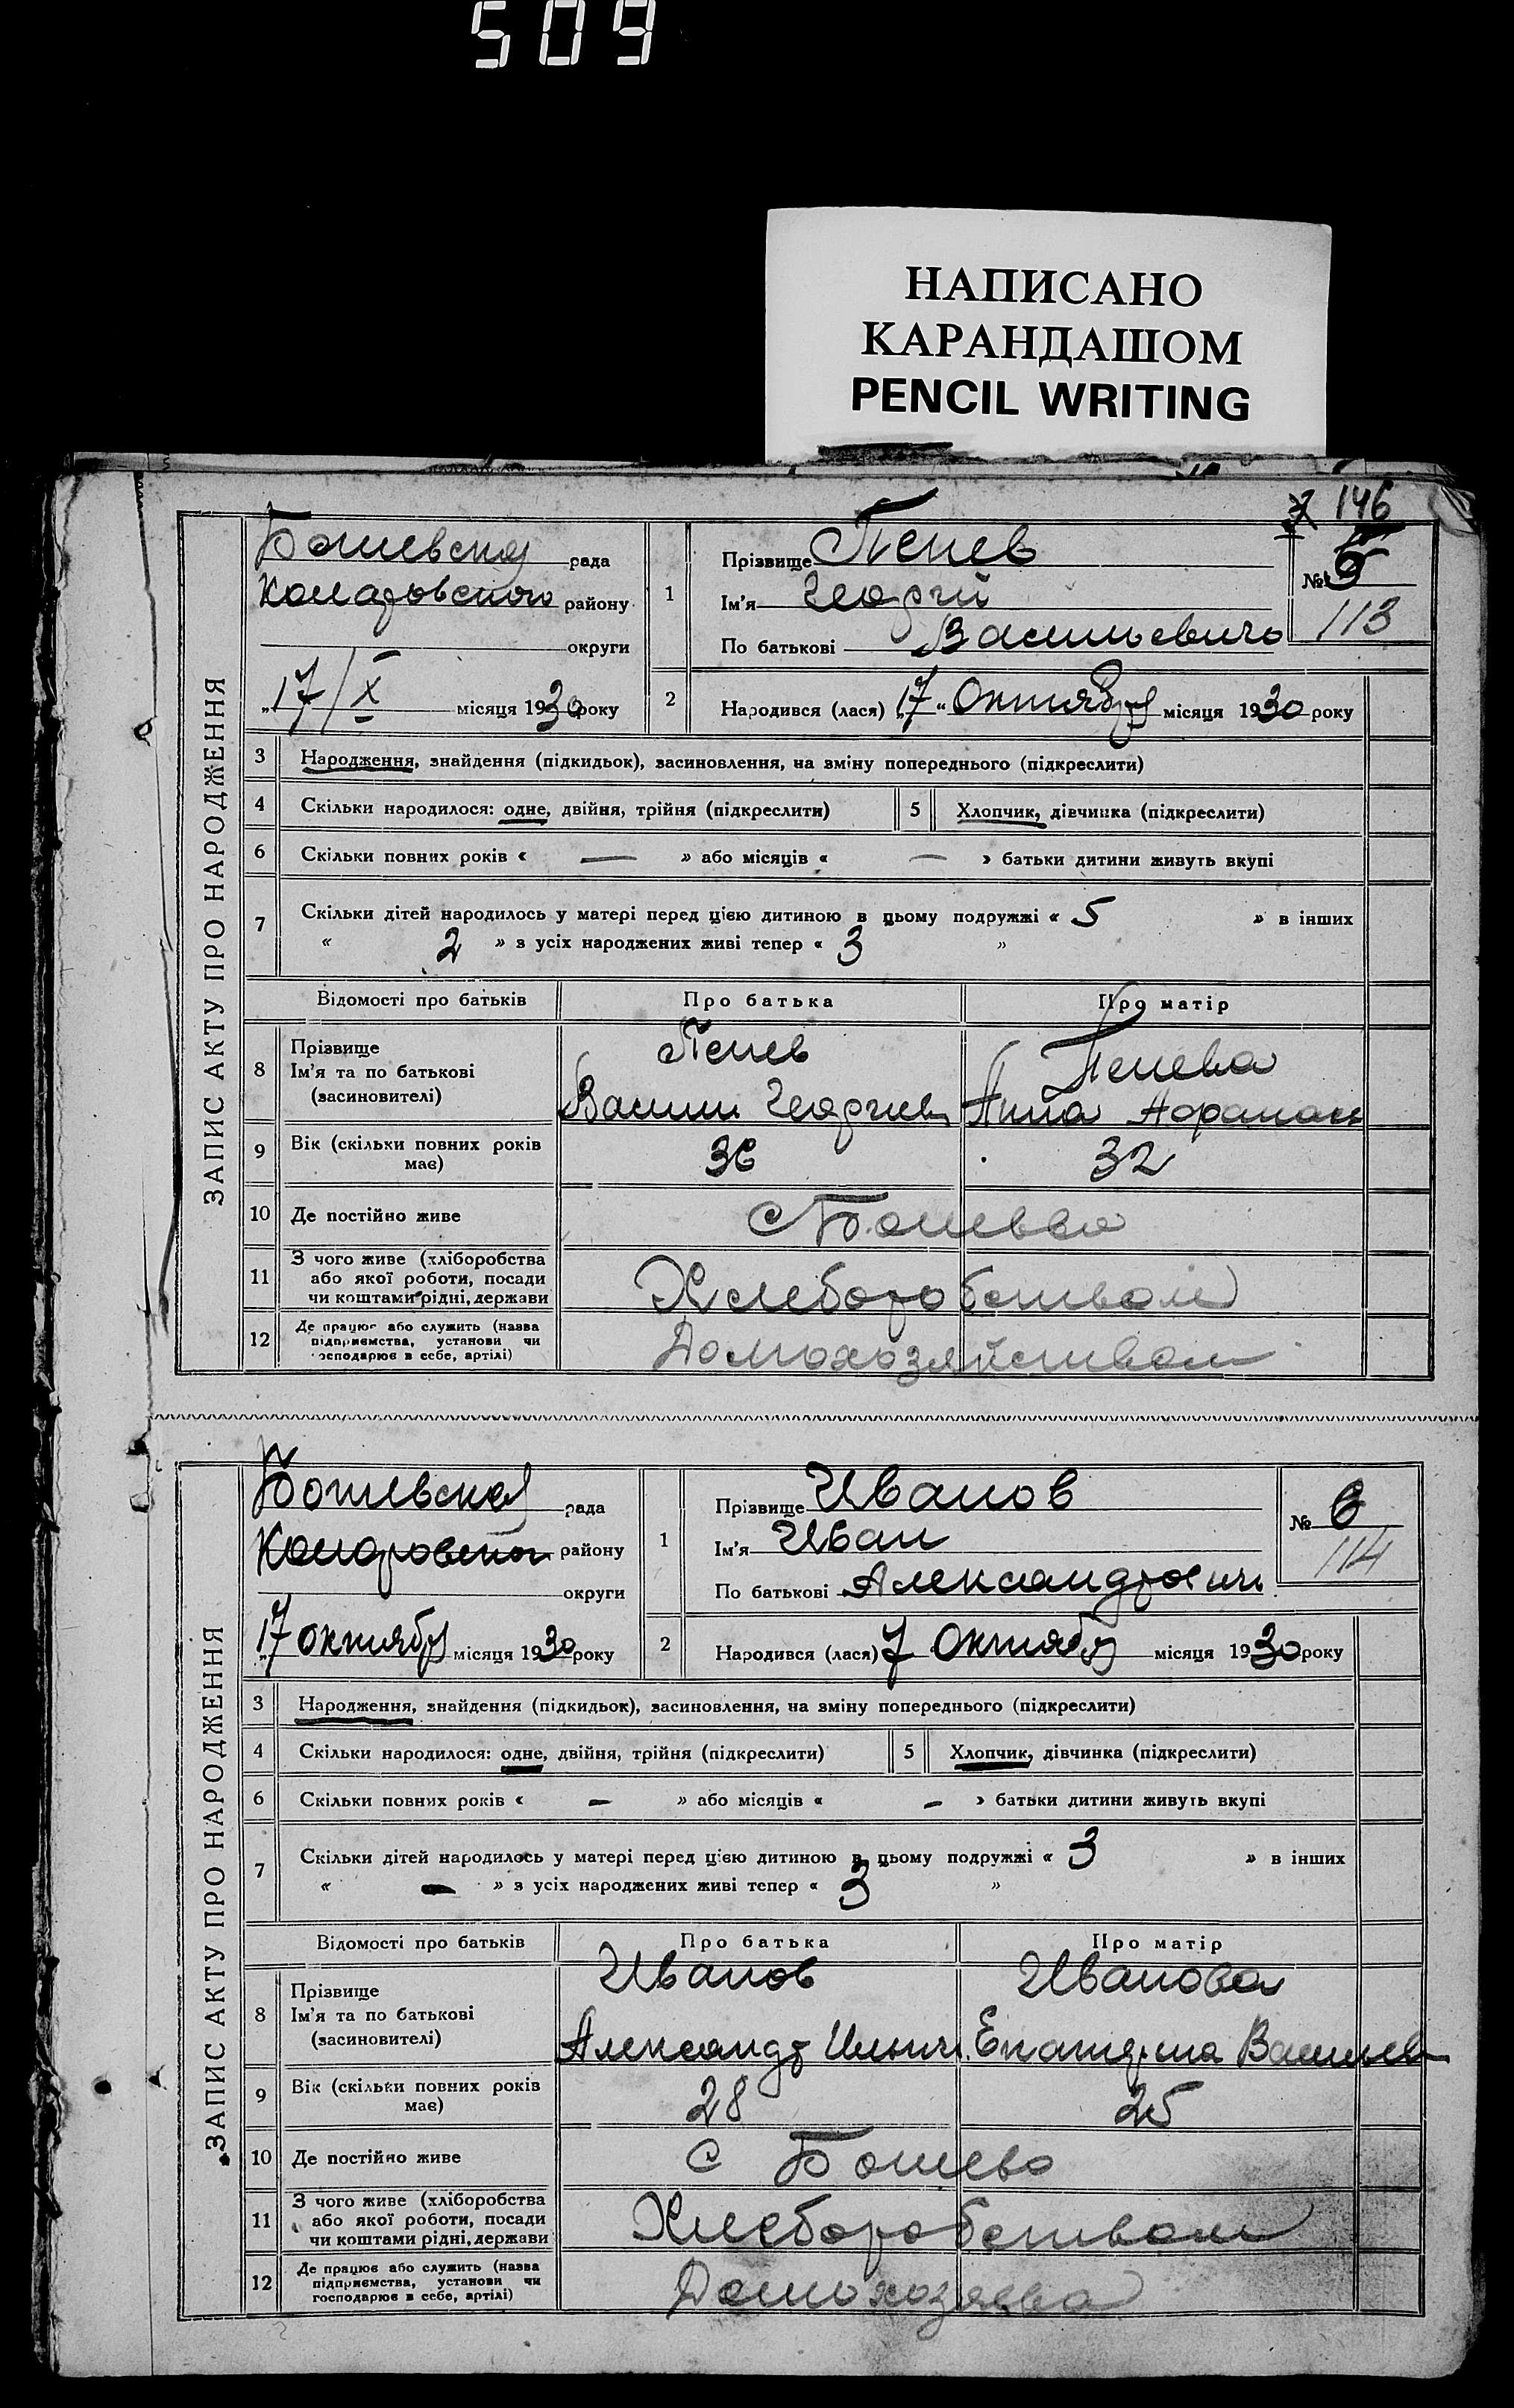 509
НАПИСАНО
КАРАНДАШОМ
PENCIL WRITING
146
ЗАПИС АКТУ ПРО НАРОДЖЕННЯ
рада
району
округи
17/X місяця 1930 року
1
Прізвище Пенев
Ім'я Георгий
По батькові Васильевичь
№ 5
113
2
Народився (лася) „17" Октября місяця 1930 року
3 Народження, знайдення (підкидьок), засиновлення, на зміну попереднього (підкреслити)
4 Скільки народилося: одне, двійня, трійня (підкреслити) 5 Хлопчик, дівчинка (підкреслити)
6 Скільки повних років « — » або місяців « — » батьки дитини живуть вкупі
7 Скільки дітей народилось у матері перед цією дитиною в цьому подружжі « 5 » в інших
« 2 » з усіх народжених живі тепер « 3 »
Відомості про батьків Про батька Про матір
8 Прізвище
Ім'я та по батькові
(засиновителі)
Пенев
Пенева
Анна
9 Вік (скільки повних років має) 36 32
10 Де постійно живе
11 З чого живе (хліборобства або якої роботи, посади чи коштами рідні, держави Хлеборобством
12 Де працює або служить (назва підприємства, установи чи господарює в себе, артілі) Домохозяйством
ЗАПИС АКТУ ПРО НАРОДЖЕННЯ
рада
району
округи
„17 октября місяця 1930 року
1
Прізвище Иванов
Ім'я Иван
По батькові
№ 6
114
2
Народився (лася) 7 Октября місяця 1930 року
3 Народження, знайдення (підкидьок), засиновлення, на зміну попереднього (підкреслити)
4 Скільки народилося: одне, двійня, трійня (підкреслити) 5 Хлопчик, дівчинка (підкреслити)
6 Скільки повних років « — » або місяців « — » батьки дитини живуть вкупі
7 Скільки дітей народилось у матері перед цією дитиною в цьому подружжі « 3 » в інших
« — » з усіх народжених живі тепер « 3 »
Відомості про батьків Про батька Про матір
8 Прізвище
Ім'я та по батькові
(засиновителі)
Иванов Иванова
Александр Ильич Екатерина Васильев
9 Вік (скільки повних років має) 28 25
10 Де постійно живе с Бошево
11 З чого живе (хліборобства або якої роботи, посади чи коштами рідні, держави Хлеборобством
12 Де працює або служить (назва підприємства, установи чи господарює в себе, артілі)